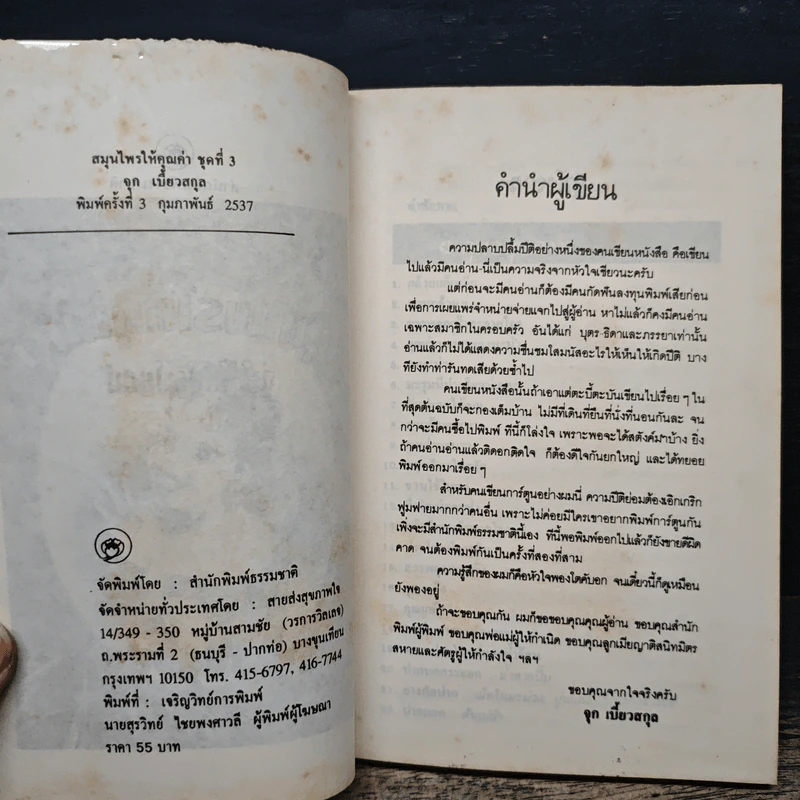 สมุนไพรให้คุณค่า ชุดที่ 3
จุก เบี้ยวสกุล
พิมพ์ครั้งที่ 3 กุมภาพันธ์ 2537
จัดพิมพ์โดย : สำนักพิมพ์ธรรมชาติ
จัดจำหน่ายทั่วประเทศโดย : สายส่งสุขภาพใจ
14/349 - 350 หมู่บ้านสามชัย (วรการวิลเลจ)
ถ.พระรามที่ 2 (ธนบุรี - ปากท่อ) บางขุนเทียน
กรุงเทพฯ 10150 โทร. 415-6797, 416-7744
พิมพ์ที่ : เจริญวิทย์การพิมพ์
นายสุรวิทย์ ไชยพงศาวลี ผู้พิมพ์ผู้โฆษณา
ราคา 55 บาท
คำนำผู้เขียน
ความปลาบปลื้มปีติอย่างหนึ่งของคนเขียนหนังสือ คือเขียน
ไปแล้วมีคนอ่าน-นี่เป็นความจริงจากหัวใจเชียวนะครับ
แต่ก่อนจะมีคนอ่านก็ต้องมีคนกัดฟันลงทุนพิมพ์เสียก่อน
เพื่อการเผยแพร่จำหน่ายจ่ายแจกไปสู่ผู้อ่าน หาไม่แล้วก็คงมีคนอ่าน
เฉพาะสมาชิกในครอบครัว อันได้แก่ บุตร-ธิดาและภรรยาเท่านั้น
อ่านแล้วก็ไม่ได้แสดงความชื่นชมโสมนัสอะไรให้เห็นให้เกิดปีติ บาง
ทียังทำท่ารันทดเสียด้วยซ้ำไป
คนเขียนหนังสือนั้นถ้าเอาแต่ตะบี้ตะบันเขียนไปเรื่อย ๆ ใน
ที่สุดต้นฉบับก็จะกองเต็มบ้าน ไม่มีที่เดินที่ยืนที่นั่งที่นอนกันละ จน
กว่าจะมีคนซื้อไปพิมพ์ ทีนี้ก็โล่งใจ เพราะพอจะได้สตังค์มาบ้าง ยิ่ง
ถ้าคนอ่านอ่านแล้วติดอกติดใจ ก็ต้องดีใจกันยกใหญ่ และได้ทยอย
พิมพ์ออกมาเรื่อย ๆ
สำหรับคนเขียนการ์ตูนอย่างผมนี่ ความปีติย่อมต้องเอิกเกริก
ฟูมฟายมากกว่าคนอื่น เพราะไม่ค่อยมีใครเขาอยากพิมพ์การ์ตูนกัน
เพิ่งจะมีสำนักพิมพ์ธรรมชาตินี้เอง ทีนี้พอพิมพ์ออกไปแล้วก็ยังขายดีผิด
คาด จนต้องพิมพ์กันเป็นครั้งที่สองที่สาม
ความรู้สึกของผมก็คือหัวใจพองโตคับอก จนเดี๋ยวนี้ก็ดูเหมือน
ยังพองอยู่
ถ้าจะขอบคุณกัน ผมก็ขอขอบคุณคุณผู้อ่าน ขอบคุณสำนัก
พิมพ์ผู้พิมพ์ ขอบคุณพ่อแม่ผู้ให้กำเนิด ขอบคุณลูกเมียญาติสนิทมิตร
สหายและศัตรูผู้ให้กำลังใจ ฯลฯ
ขอบคุณจากใจจริงครับ
จุก เบี้ยวสกุล